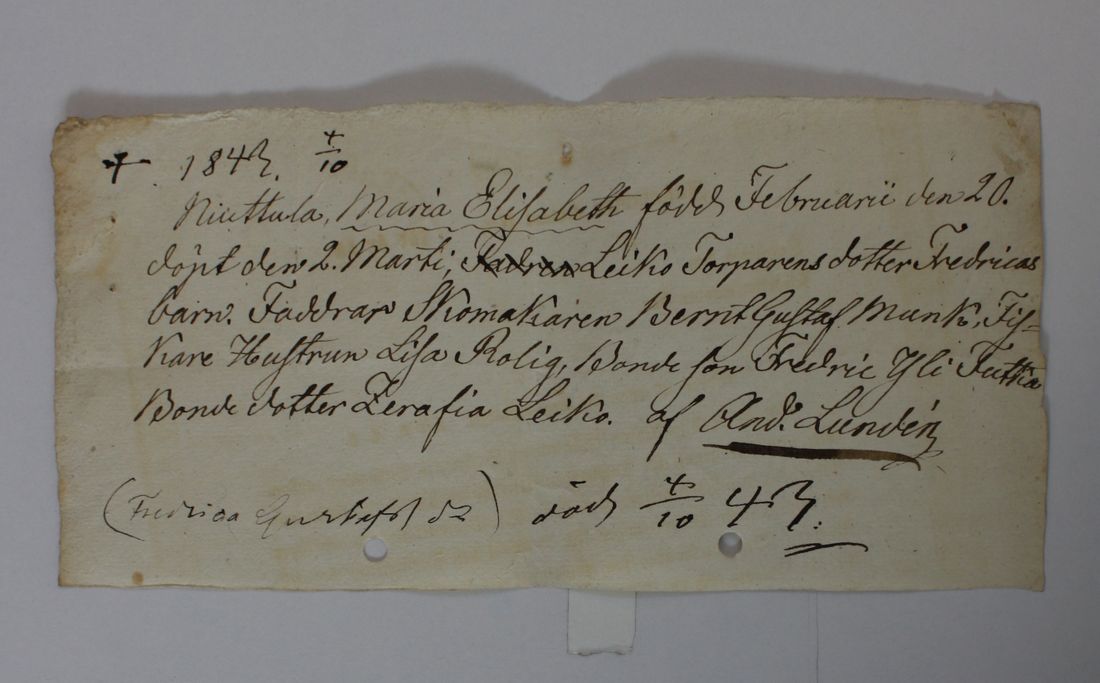 + 1843. 4/10
Niuttula, Maria Elisabeth född Februarii den 20.
döpt den 2. Marti, Fadren Leiko Torparens dotter Fredricas
barn. Faddrar Skomakaren Bernt Gustaf Munk, Fis-
kare Hustrun Lisa Rolig, Bonde son Fredric Yli
Bonde dotter Zerafia Leiko. af And. Lundén
(Fredrica Gustafs dr) död 4/10 43.